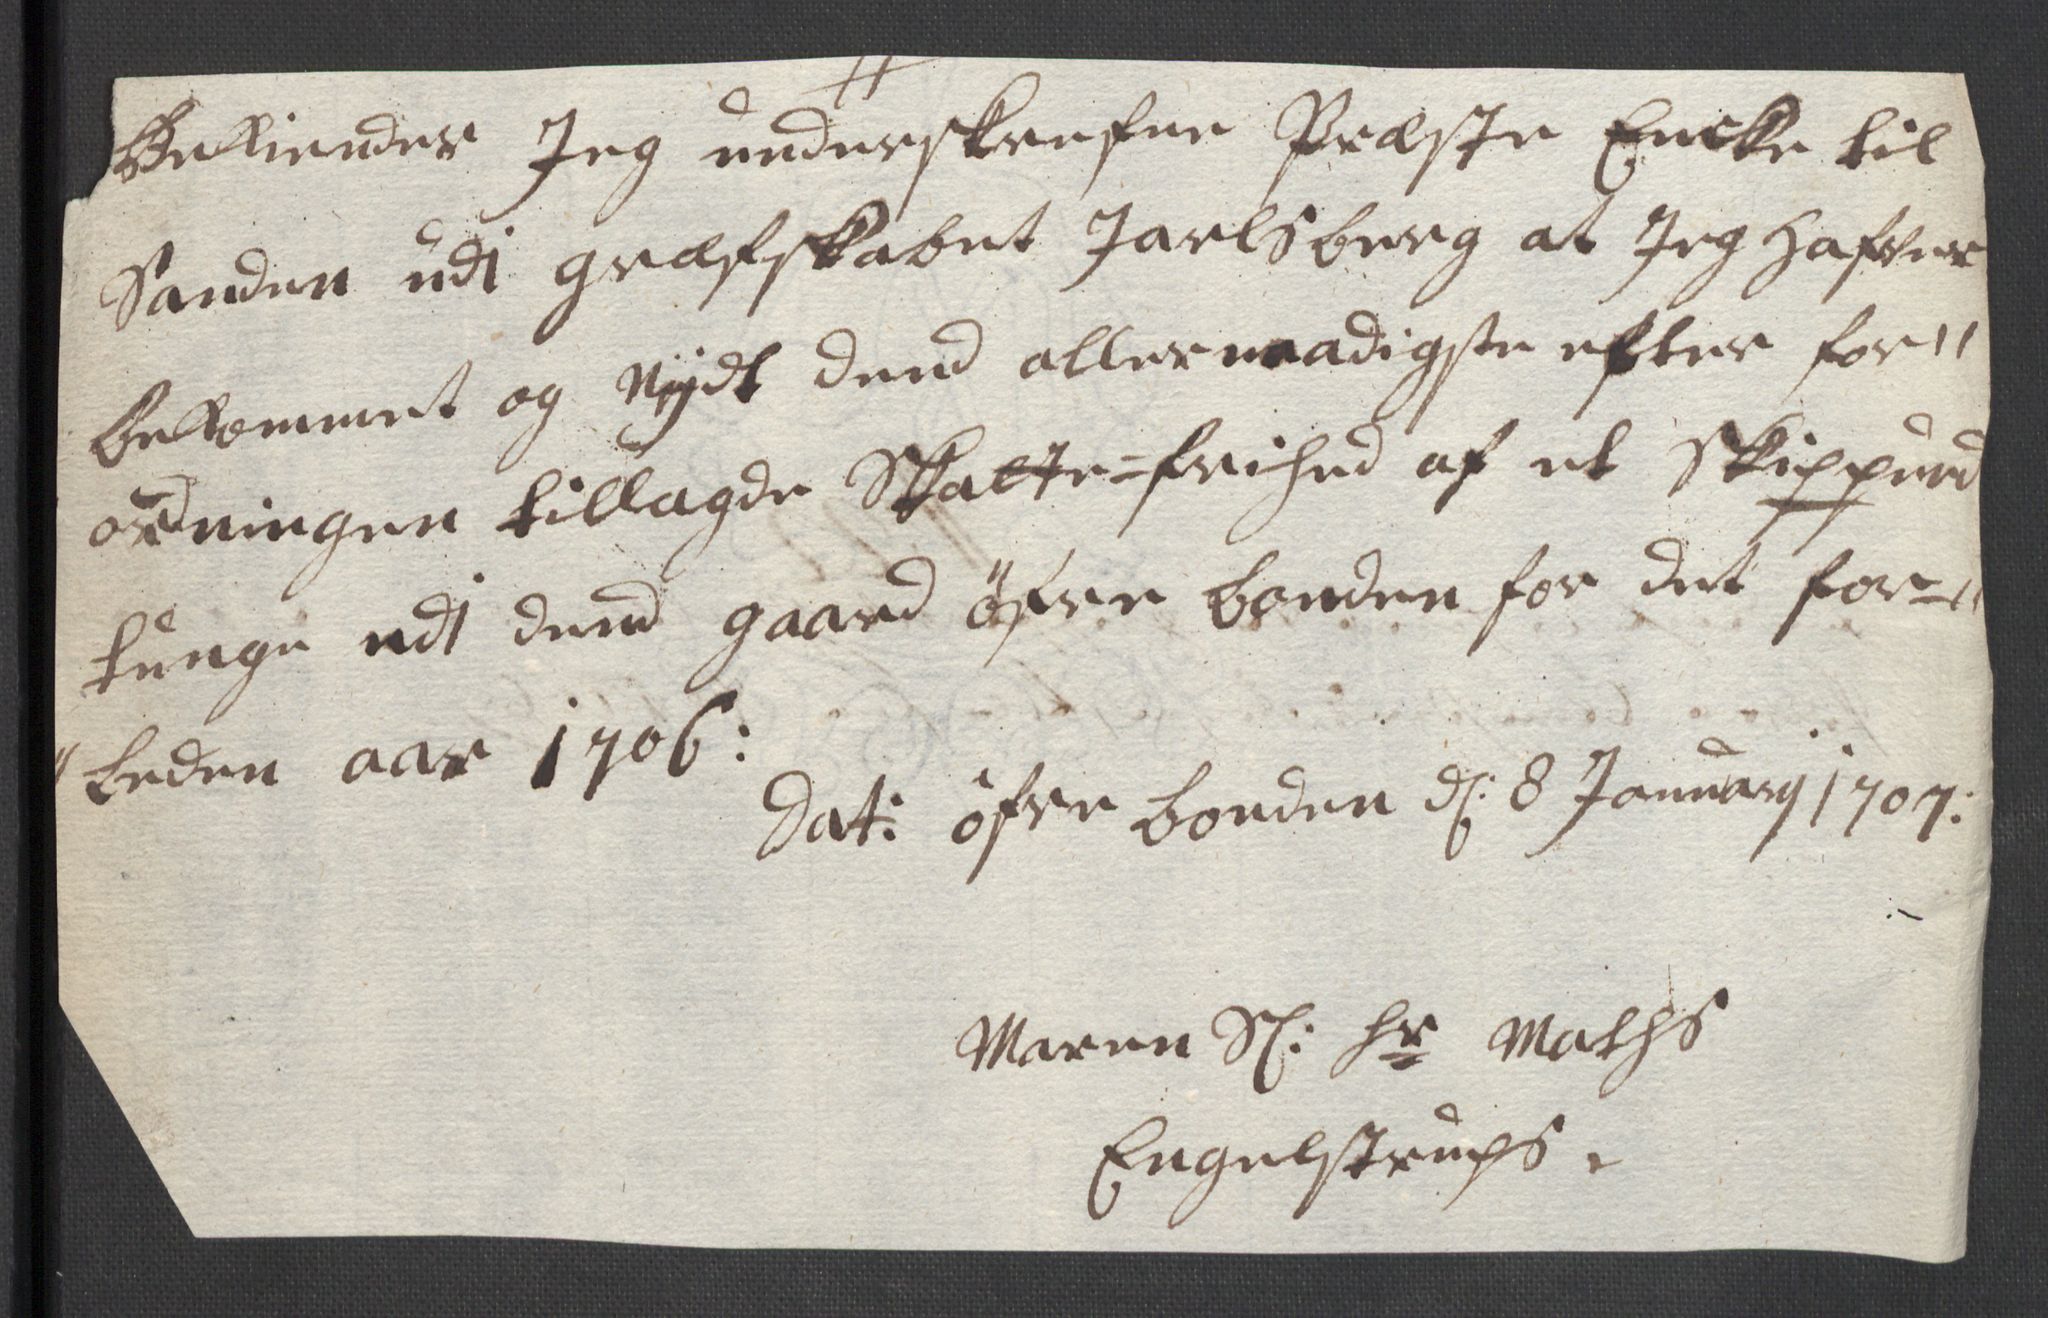 Bekiender Jeg underskrefne Præste Encke til
Sanden udi grefskabet Jarlsberg at Jeg hafver
bekommet og Nydt dend allernaadigste efter for"
ordningen tillagde Skatte=frihed af et Skippund
tunge udi dend gaard öfre bonden for det for="
"leden aar 1706:
Dat: öfre bonden d: 8 January 1707:
Maren Sl: hr Maths
Engelstrups.